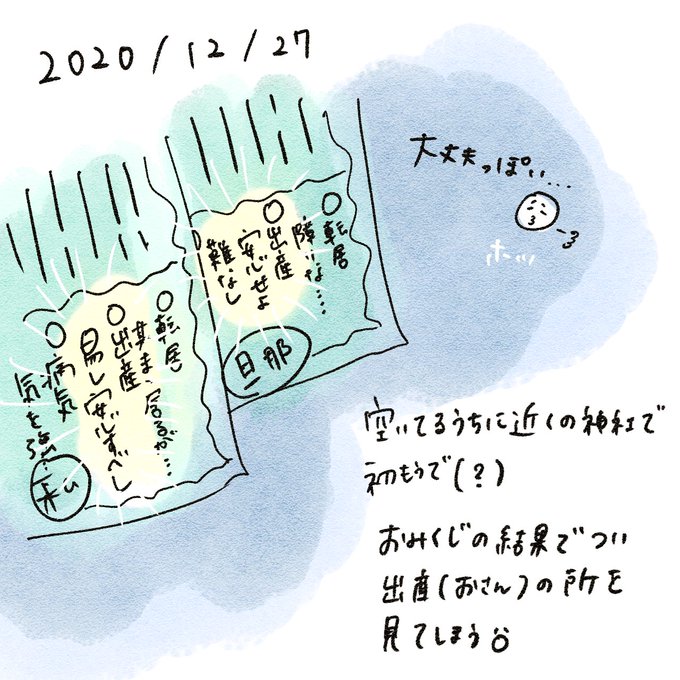 2020/12/27
大丈夫っぽい…
ホッ
○転居
障りな…
○出産
安心せよ
難なし
旦那
○転居
其まゝ居るが…
○出産
易し安心すべし
○病気
気を強…
私
空いてるうちに近くの神社で
初もうで(?)
おみくじの結果でつい
出産(おさん)の所を
見てしまう